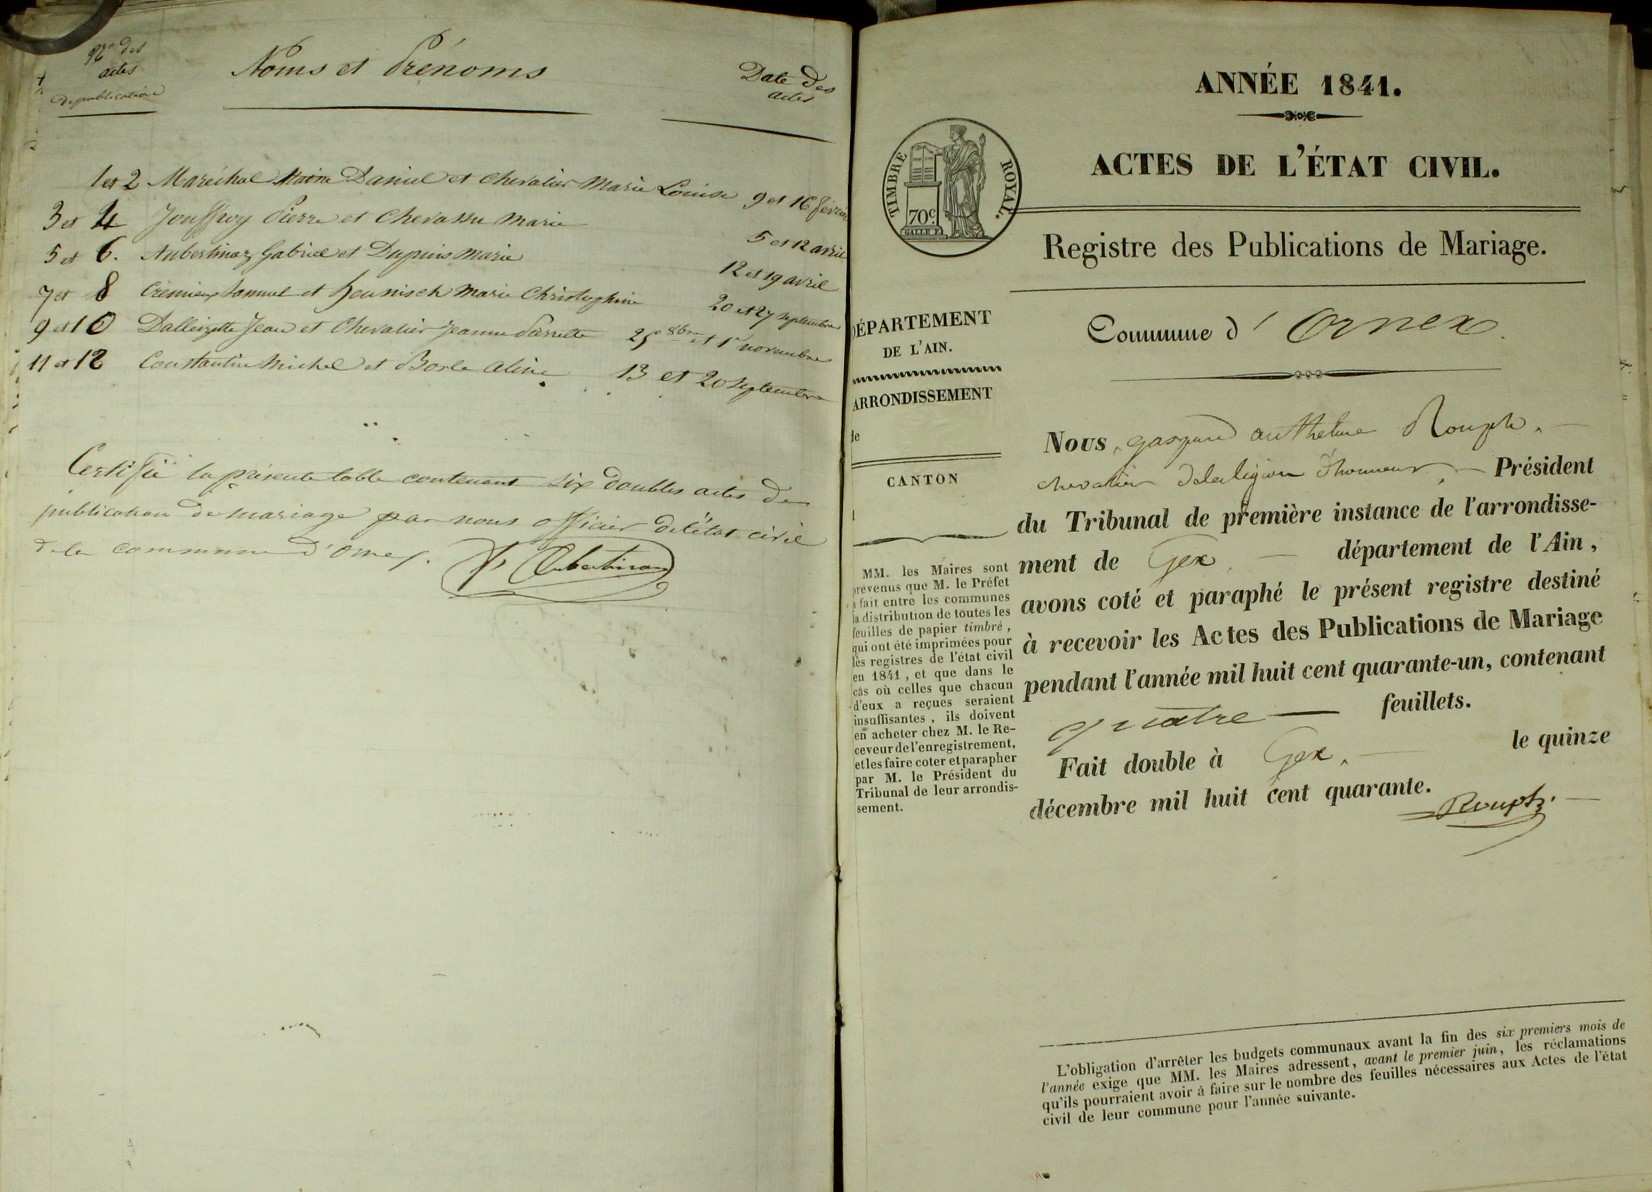 Nos des
actes
de publication
Noms et Prénoms
Date des
actes
1 et 2 Maréchal Daniel et Chevalier Marie Louise 9 et 16 février
3 et 4 Jouffroy Pierre et Chevassu Marie 5 et 12 avril
5 et 6. Aubertinaz Gabriel et Dupuis Marie 12 et 19 avril
7 et 8 Crémieux Samuel et Heunisch Marie Christophine 20 et 27 septembre
9 et 10 Jean et Chevalier Jeanne Pierrette 25 8bre et 1er novembre
11 et 12 Constantin Michel et Aline 13 et 20 septembre
Certifié la présente table contenant six doubles actes de
publication de mariage par nous officier de l'état civil
de la commune d'Ornex.
Aubertinaz
ANNÉE 1841.
ACTES DE L'ÉTAT CIVIL.
TIMBRE ROYAL.
70c
Registre des Publications de Mariage.
DÉPARTEMENT
DE L'AIN.
ARRONDISSEMENT
de
CANTON
MM. les Maires sont
prévenus que M. le Préfet
a fait entre les communes
la distribution de toutes les
feuilles de papier timbré,
qui ont été imprimées pour
les registres de l'état civil
en 1841, et que dans le
cas où celles que chacun
d'eux a reçues seraient
insuffisantes, ils doivent
en acheter chez M. le Re-
ceveur de l'enregistrement,
et les faire coter et parapher
par M. le Président du
Tribunal de leur arrondis-
sement.
Commune d' Ornex.
Nous, gaspard anthelme Rouph,
chevalier de la légion d'honneur, Président
du Tribunal de première instance de l'arrondisse-
ment de Gex, département de l'Ain,
avons coté et paraphé le présent registre destiné
à recevoir les Actes des Publications de Mariage
pendant l'année mil huit cent quarante-un, contenant
quatre feuillets.
Fait double à Gex, le quinze
décembre mil huit cent quarante.
Rouph.
L'obligation d'arrêter les budgets communaux avant la fin des six premiers mois de
l'année exige que MM. les Maires adressent, avant le premier juin, les réclamations
qu'ils pourraient avoir à faire sur le nombre des feuilles nécessaires aux Actes de l'état
civil de leur commune pour l'année suivante.